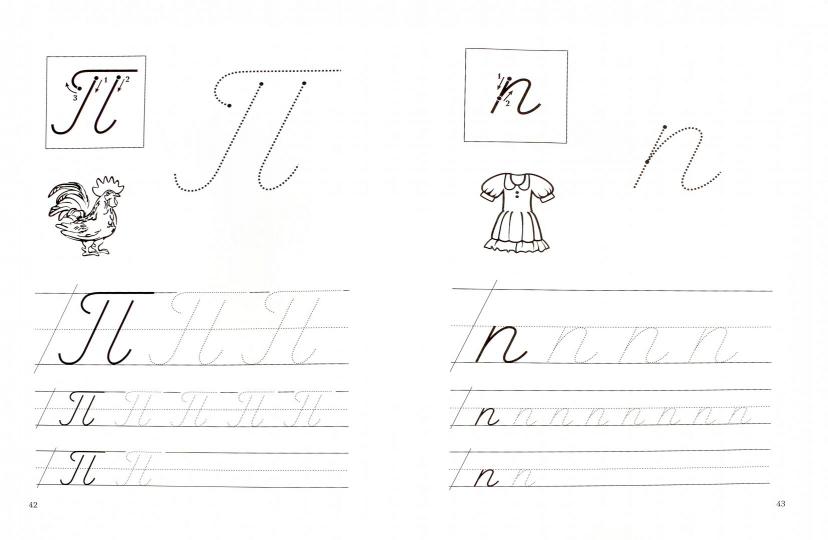 П
1
2
3
П
П П П
П П П П П
П П
42
п
1
2
п
п п п п
п п п п п п п п
п п
43